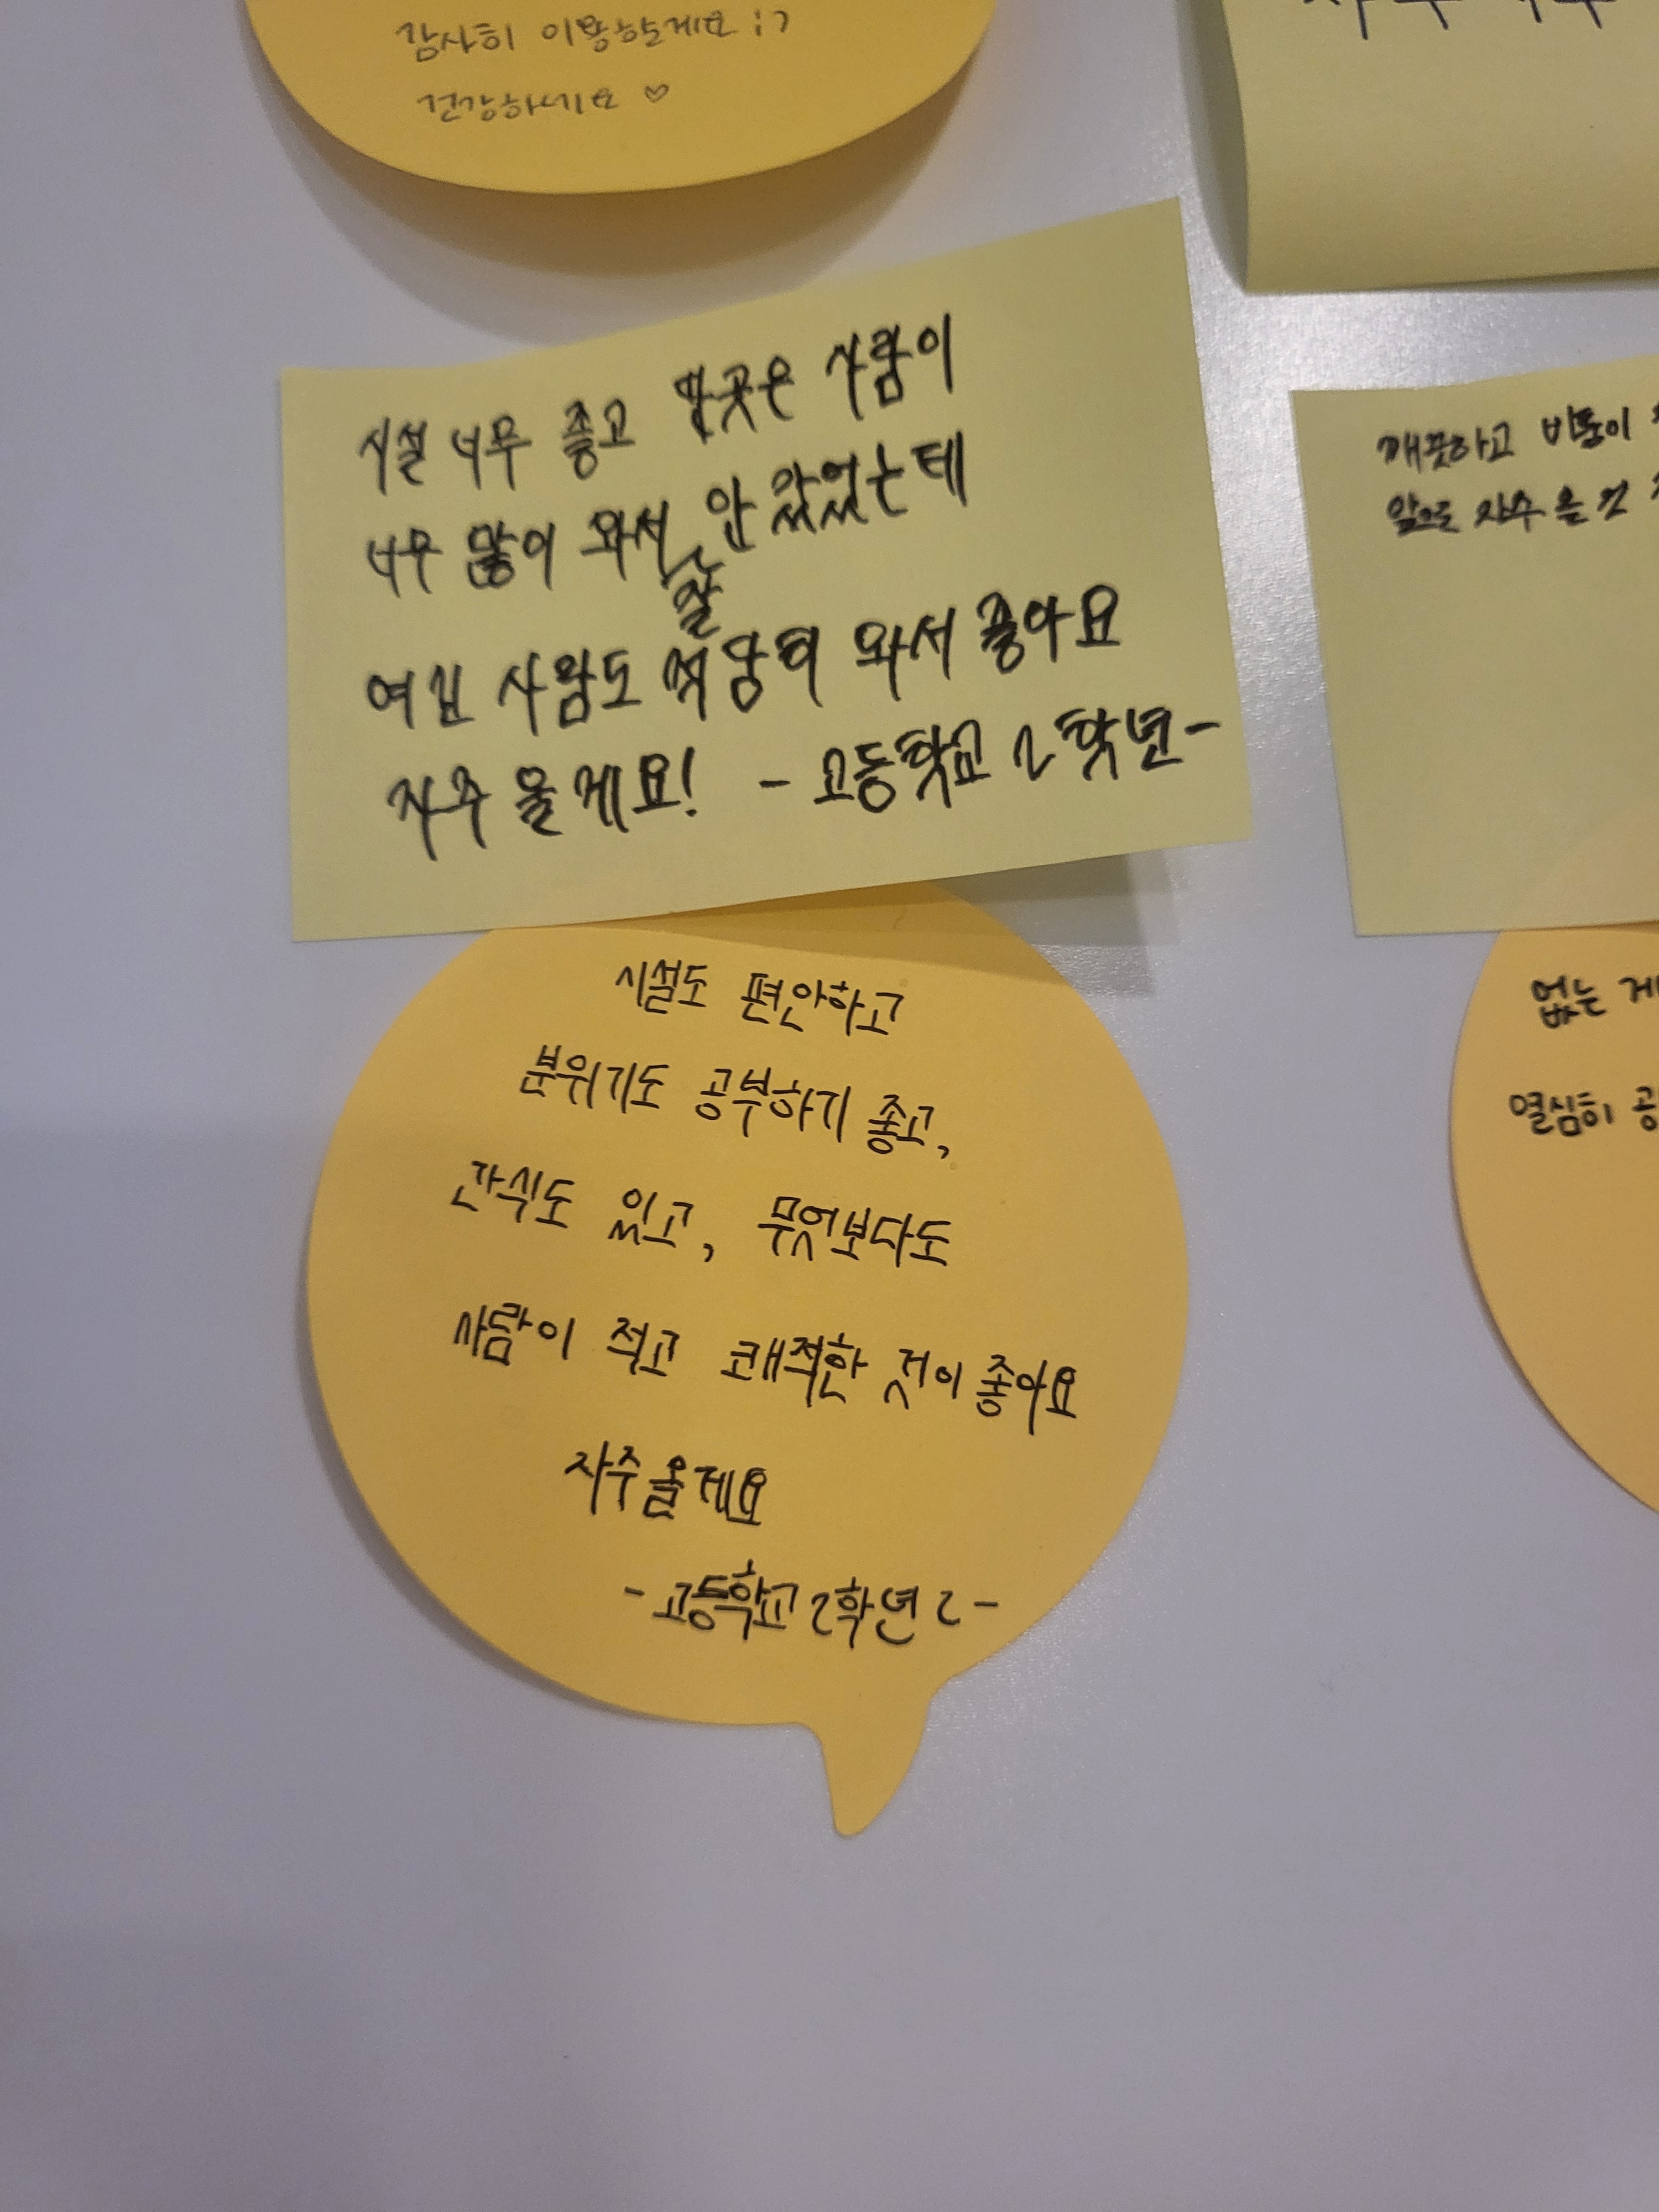 감사히 이용할게요 :)
건강하세요 ♡
시설 너무 좋고 딴곳은 사람이
너무 많이 와서 잘 안 갔었는데
여긴 사람도 적당히 와서 좋아요
자주 올게요! - 고등학교 2학년-
시설도 편안하고
분위기도 공부하기 좋고,
간식도 있고, 무엇보다도
사람이 적고 쾌적한 것이 좋아요
자주올게요
- 고등학교 2학년 2 -
깨끗하고
앞으로 자주 올 것
없는
열심히